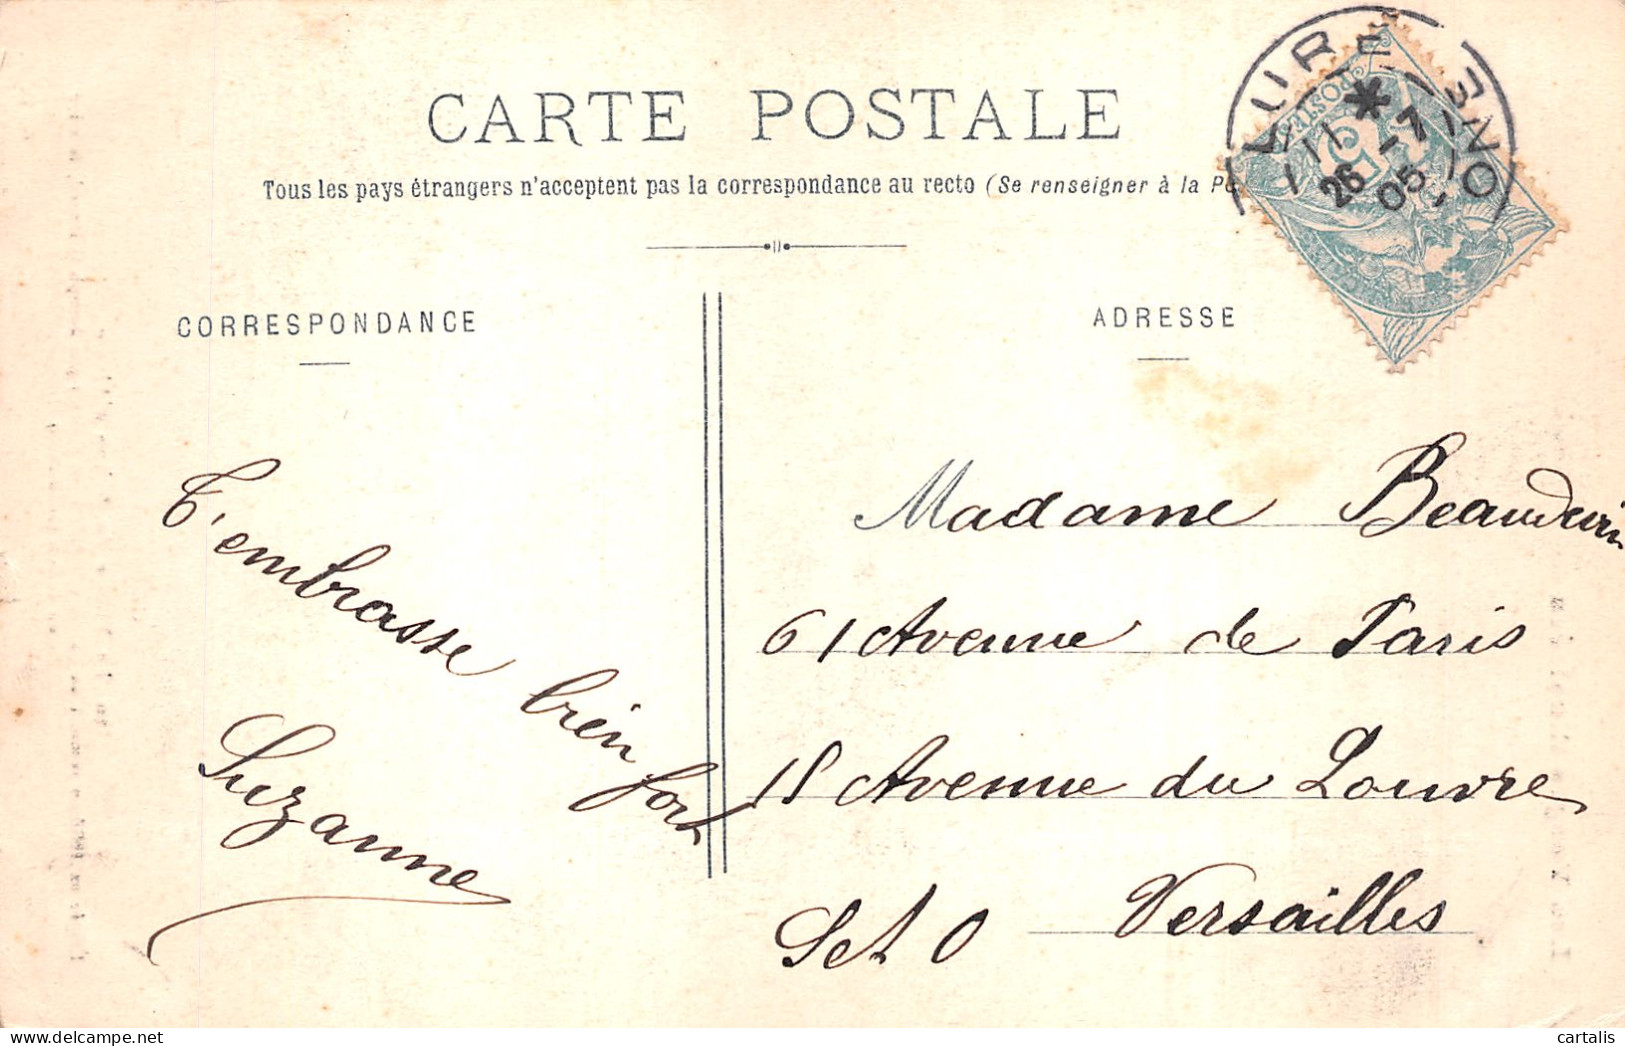 CARTE POSTALE
Tous les pays étrangers n'acceptent pas la correspondance au recto (Se renseigner à la
CORRESPONDANCE
ADRESSE
EURE
11 *
26 -7
05
POSTE
5
T'embrasse bien fort
Suzanne
Madame Beauduin
61 Avenue de Paris
18 Avenue du Louvre
Versailles
S et O
cartalis